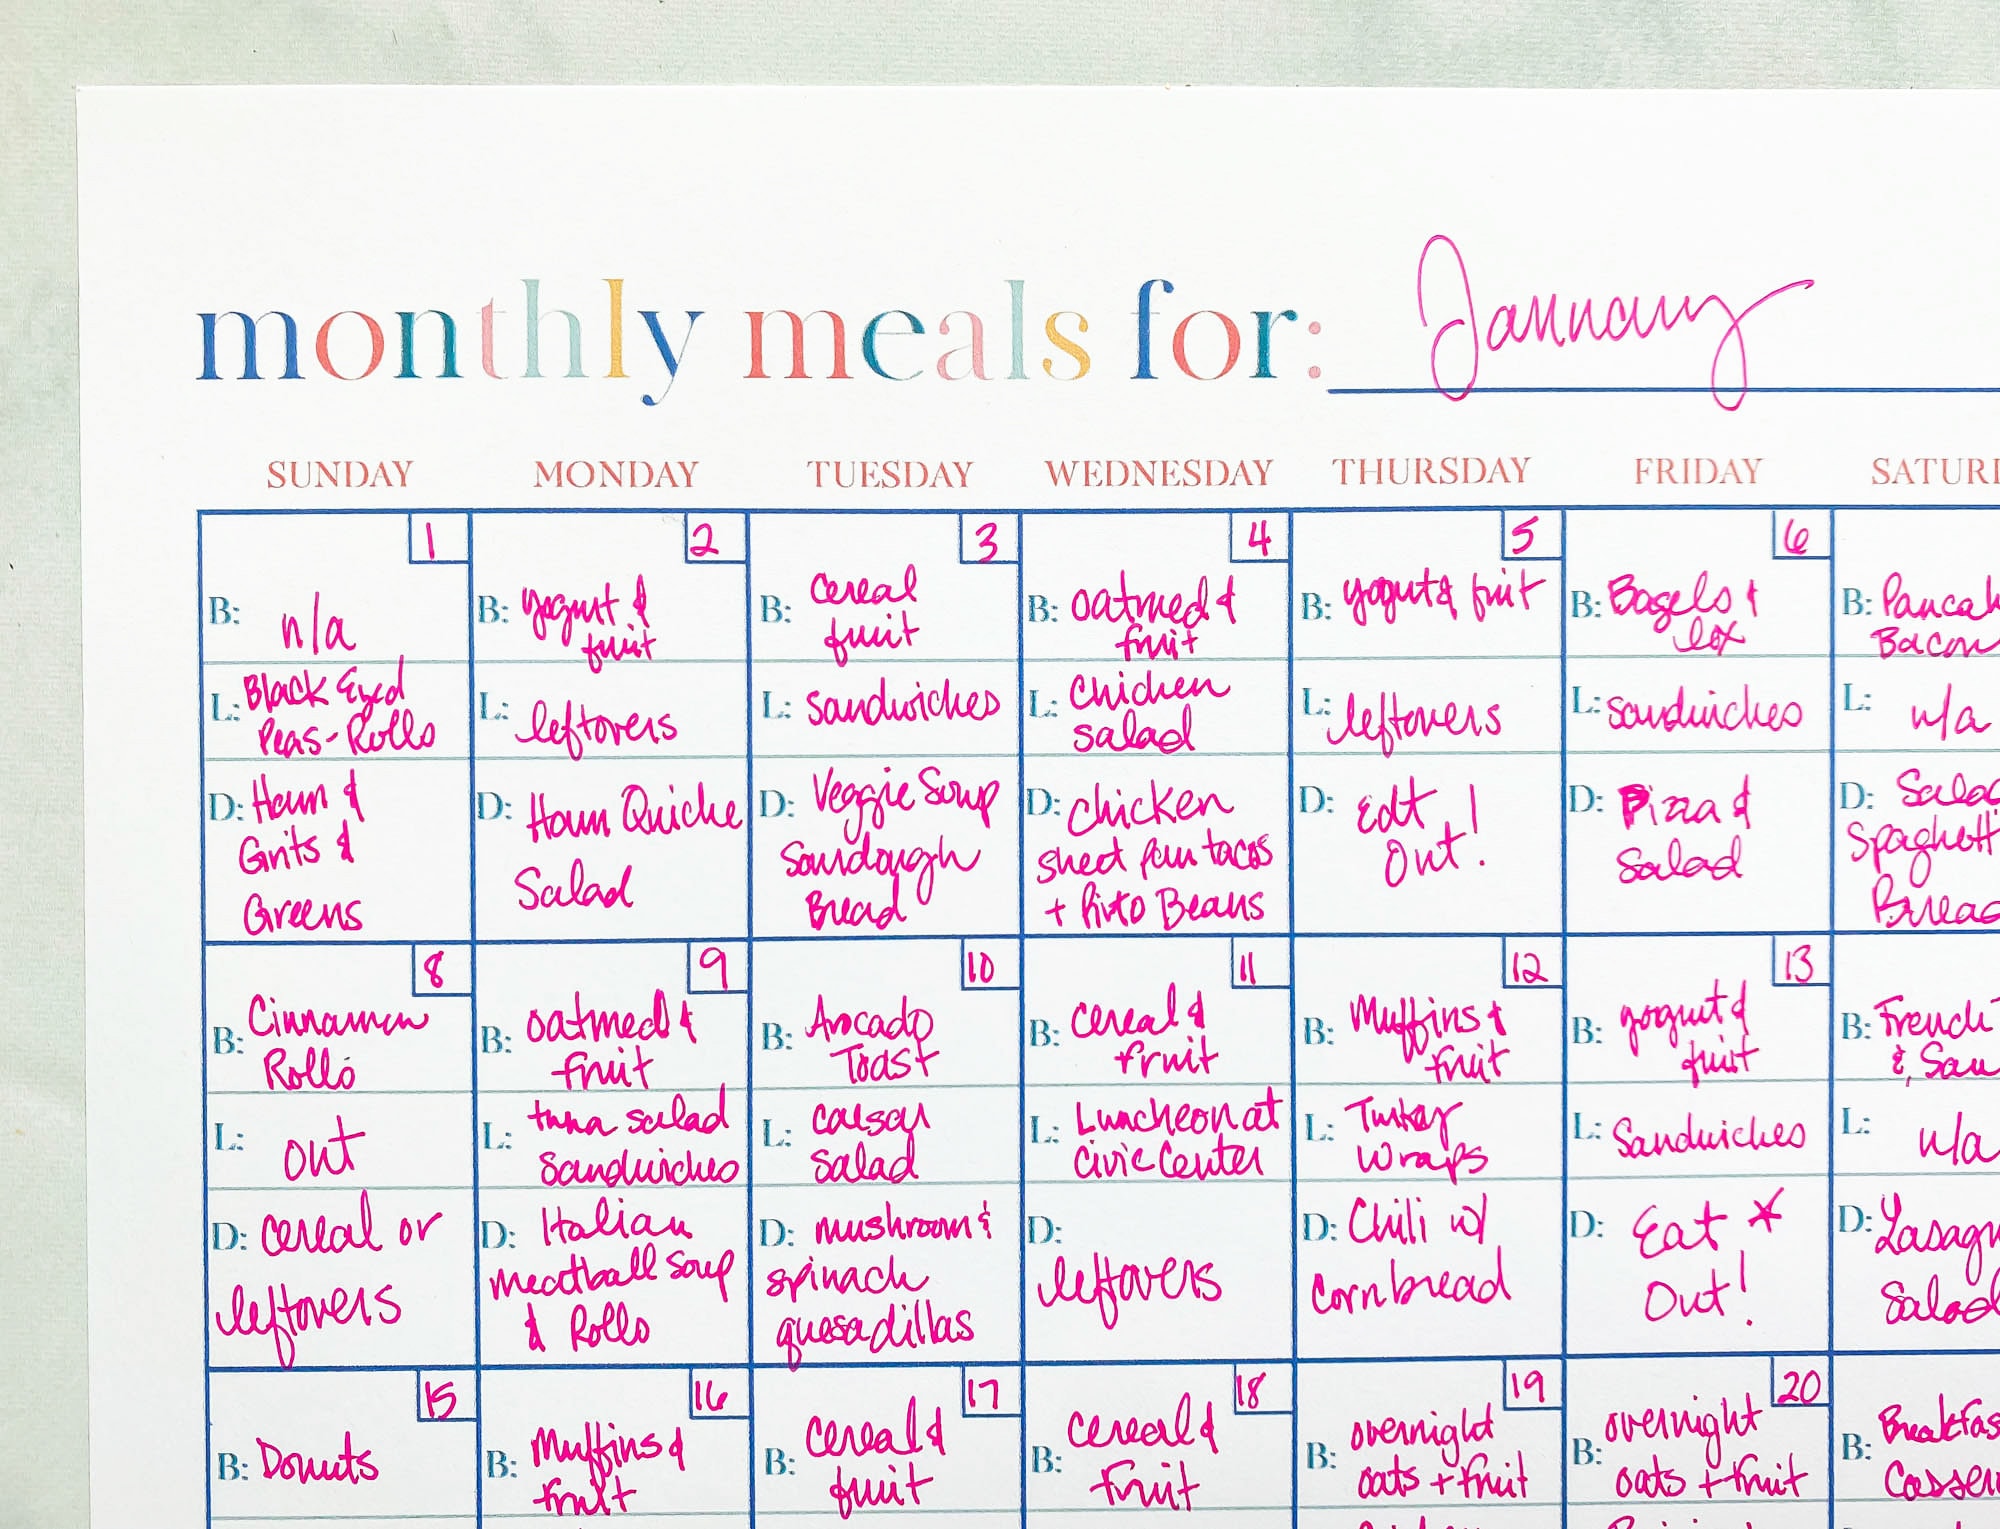 monthly meals for: January
SUNDAY MONDAY TUESDAY WEDNESDAY THURSDAY FRIDAY SATUR
1
B: n/a
L: Black Eyed
Peas - Rolls
D: Ham &
Grits &
Greens
2
B: yogurt &
fruit
L: leftovers
D: Ham Quiche
Salad
3
B: cereal
fruit
L: sandwiches
D: Veggie Soup
Sourdough
Bread
4
B: oatmeal &
fruit
L: Chicken
salad
D: chicken
sheet pan tacos
+ Pinto Beans
5
B: yogurt & fruit
L: leftovers
D: Eat
Out!
6
B: Bagels &
lox
L: sandwiches
D: Pizza &
Salad
B: Pancak
Bacon
L: n/a
D: Salad
Spaghetti
Bread
8
B: Cinnamon
Rolls
L: out
D: cereal or
leftovers
9
B: oatmeal &
fruit
L: tuna salad
sandwiches
D: Italian
meatball soup
& Rolls
10
B: Avocado
Toast
L: caesar
salad
D: mushroom &
spinach
quesadillas
11
B: cereal &
fruit
L: Luncheon at
Civic Center
D:
leftovers
12
B: Muffins &
fruit
L: Turkey
wraps
D: Chili w/
cornbread
13
B: yogurt &
fruit
L: Sandwiches
D: Eat *
Out!
B: French T
& Sau
L: n/a
D: Lasagn
Salad
15
B: Donuts
16
B: Muffins &
fruit
17
B: cereal &
fruit
18
B: cereal &
fruit
19
B: overnight
oats + fruit
20
B: overnight
oats + fruit
B: Breakfas
Casser